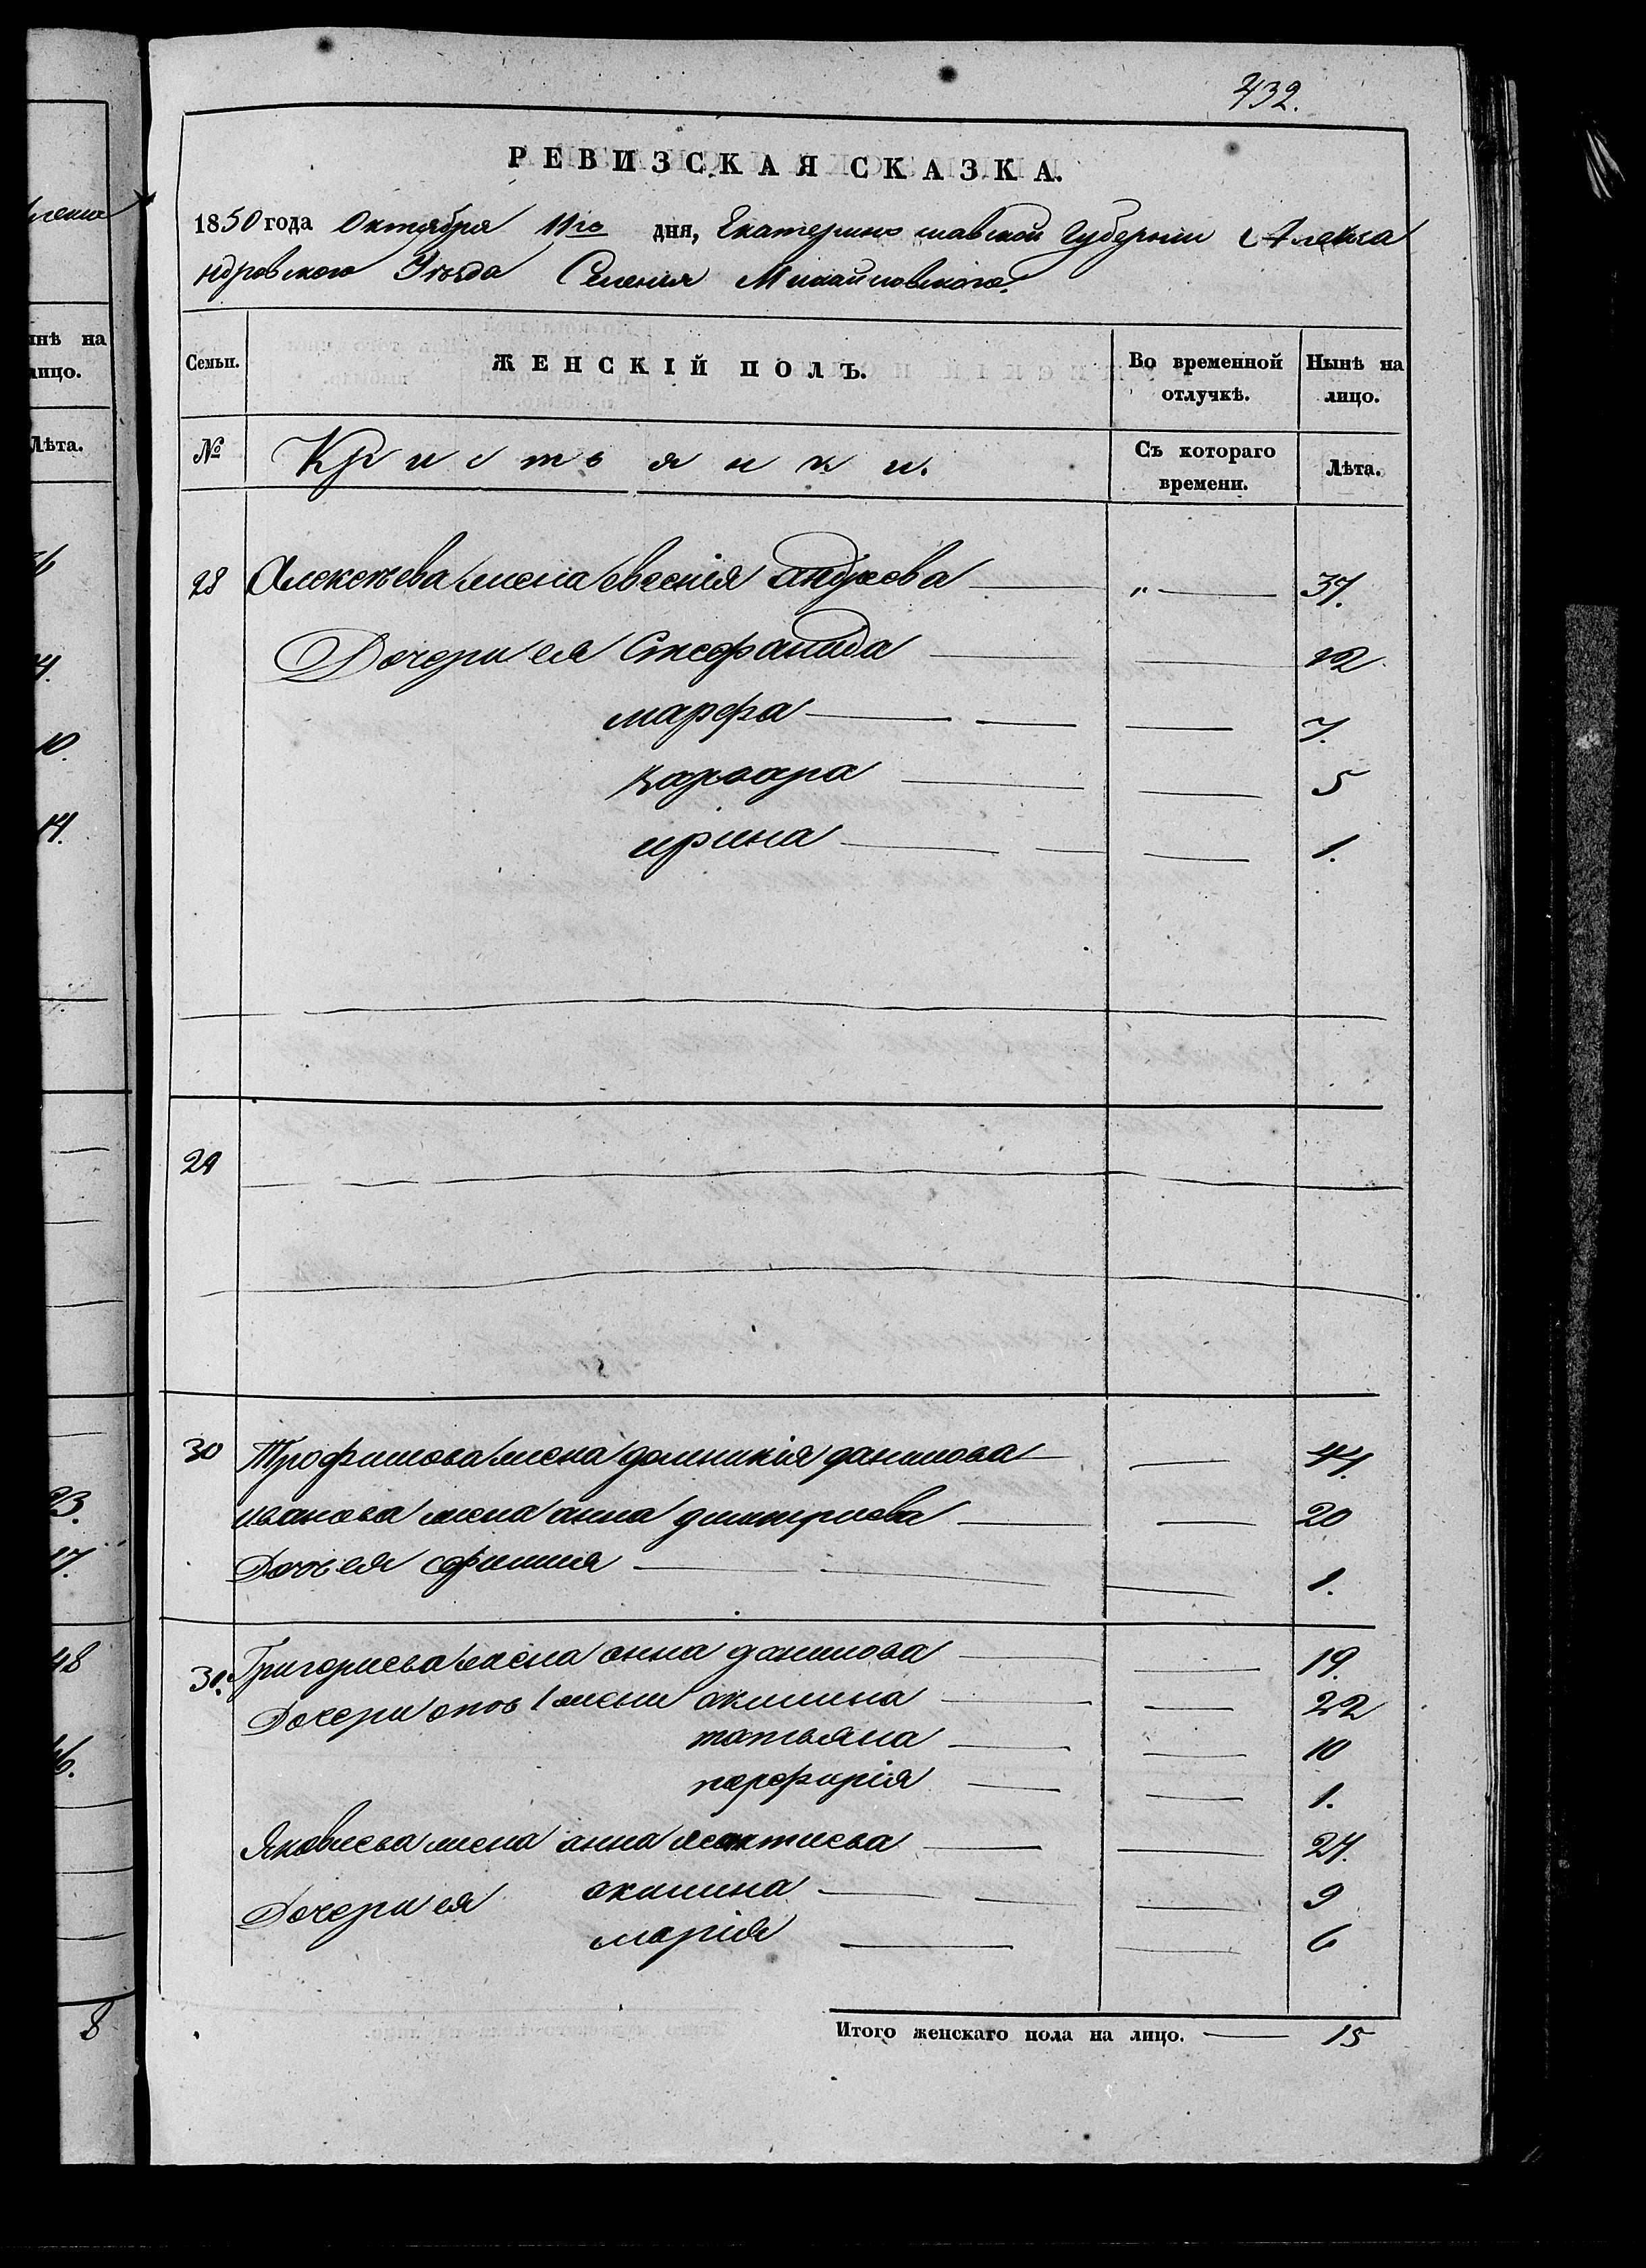 432.
РЕВИЗСКАЯ СКАЗКА.
1850 года Октября 11го дня, Екатеринославской Губернии Алекса
ндровского Уезда Селения Михайловского.
Семьи.
ЖЕНСКІЙ ПОЛЪ.
Во временной отлучкѣ.
Нынѣ на лицо.
№
Кристьянки.
Съ котораго времени.
Лѣта.
28 Алексеева жена евсенія 37.
Дочери ея Стефанида 12
марфа 7.
варвара 5
ирина 1.
29
30 Трофимова жена домникія данилова 44.
иванова жена анна дмитриева 20
Дочь ея 1.
31. Григориева жена анна данилова 19.
Дочери отъ 1 жены акилина 22
татьяна 10
порфирія 1.
Яковлева жена анна 27.
Дочери ея акилина 9
марія 6
Итого женскаго пола на лицо. 15
ынѣ на
лицо.
Лѣта.
10.
14.
23.
17.
48
8